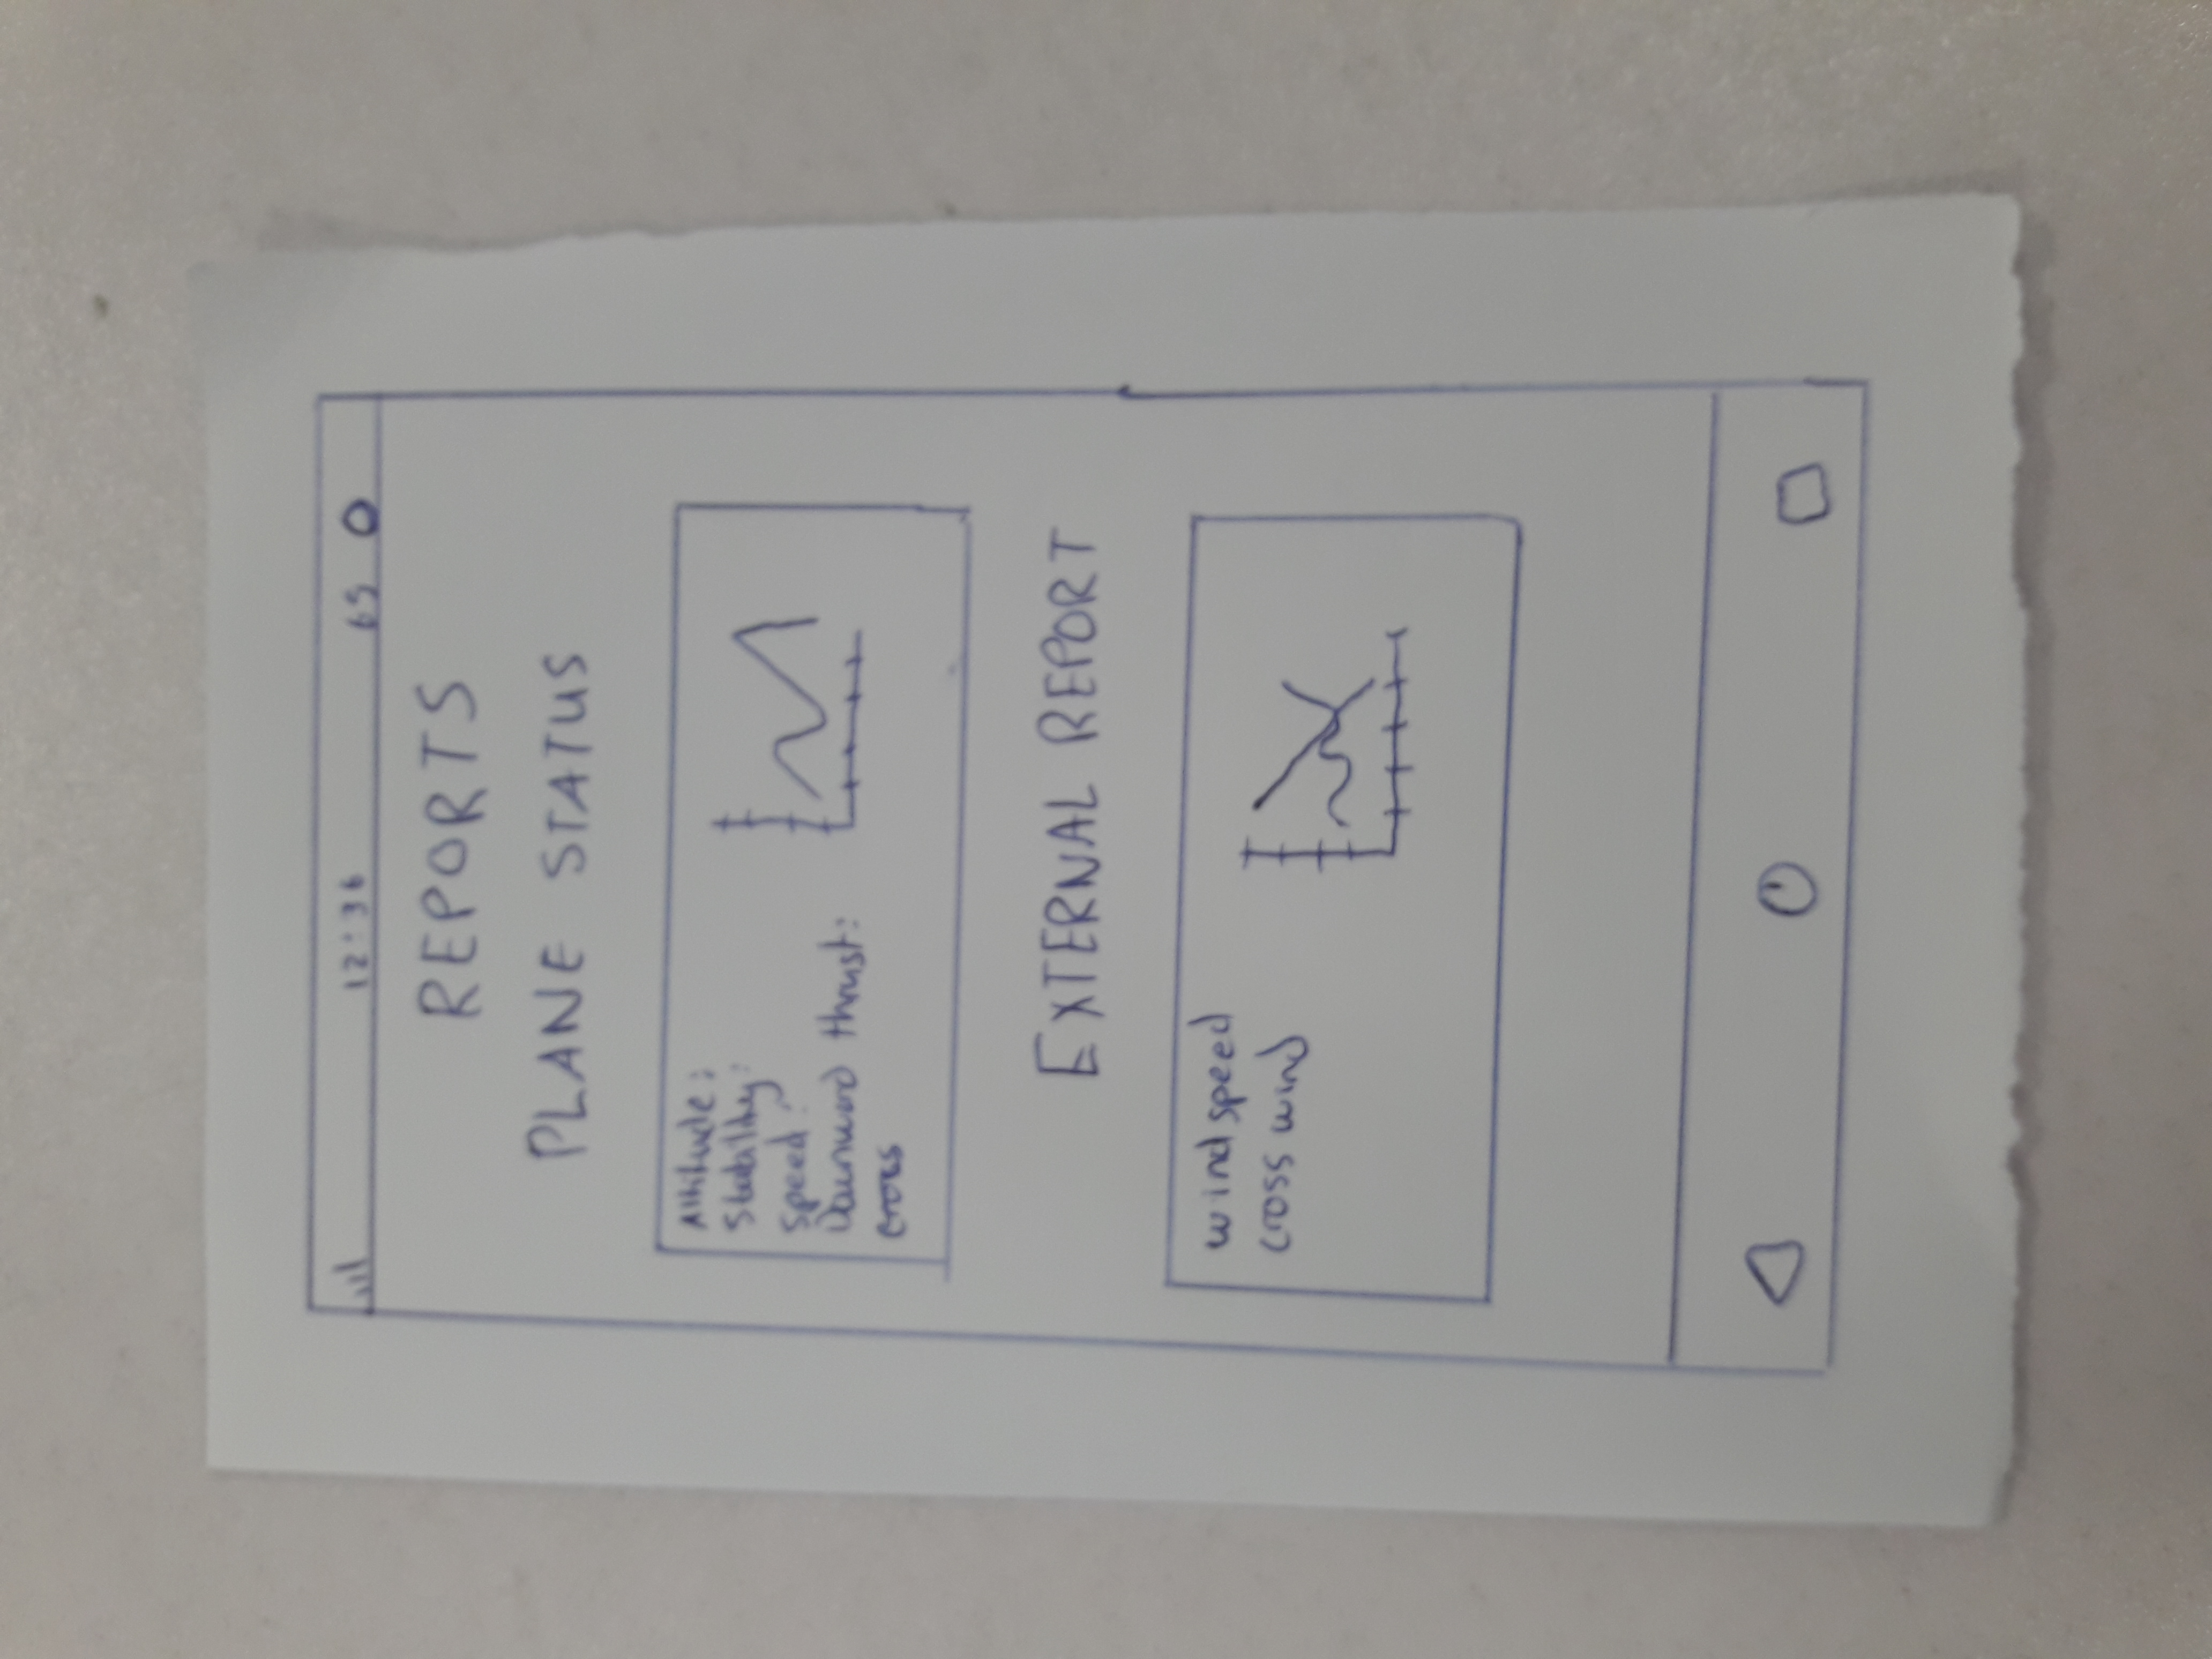 12:36 65
REPORTS
PLANE STATUS
Altitude:
Stability:
speed:
Downward thrust:
EXTERNAL REPORT
wind speed
cross wind